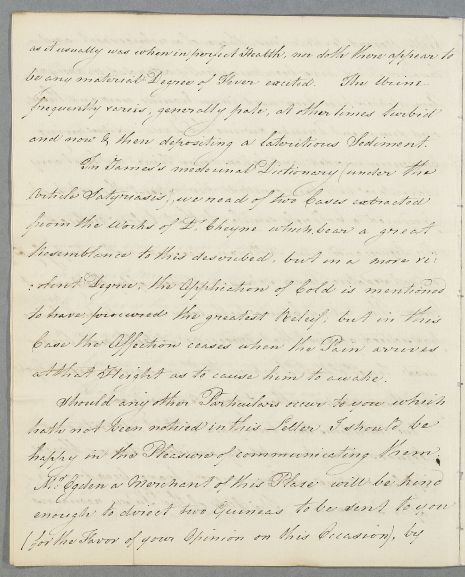 as it usually was when in perfect Health, nor doth there appear to
be any material Degree of Fever excited. The Urine
frequently varies, generally pale, at other times turbid
and now & then depositing a lateritious Sediment.
In James's medicinal Dictionary (under the
Article Satyriasis) we read of two Cases extracted
from the Works of Dr Cheyne which bear a great
Resemblance to this described, but in a more vi:
:olent Degree; the Application of Cold is mentioned
to have procured the greatest Releif, but in this
Case the Affection ceases when the Pain arrives
at that Height as to cause him to awake.
Should any other Particulars occur to you which
hath not been noticed in this Letter, I should be
happy in the Pleasure of communicating them.
Mr Ogden a Merchant of this Place will be kind
enough to direct two Guineas to be sent to you
(for the Favor of your Opinion on this Occasion), by